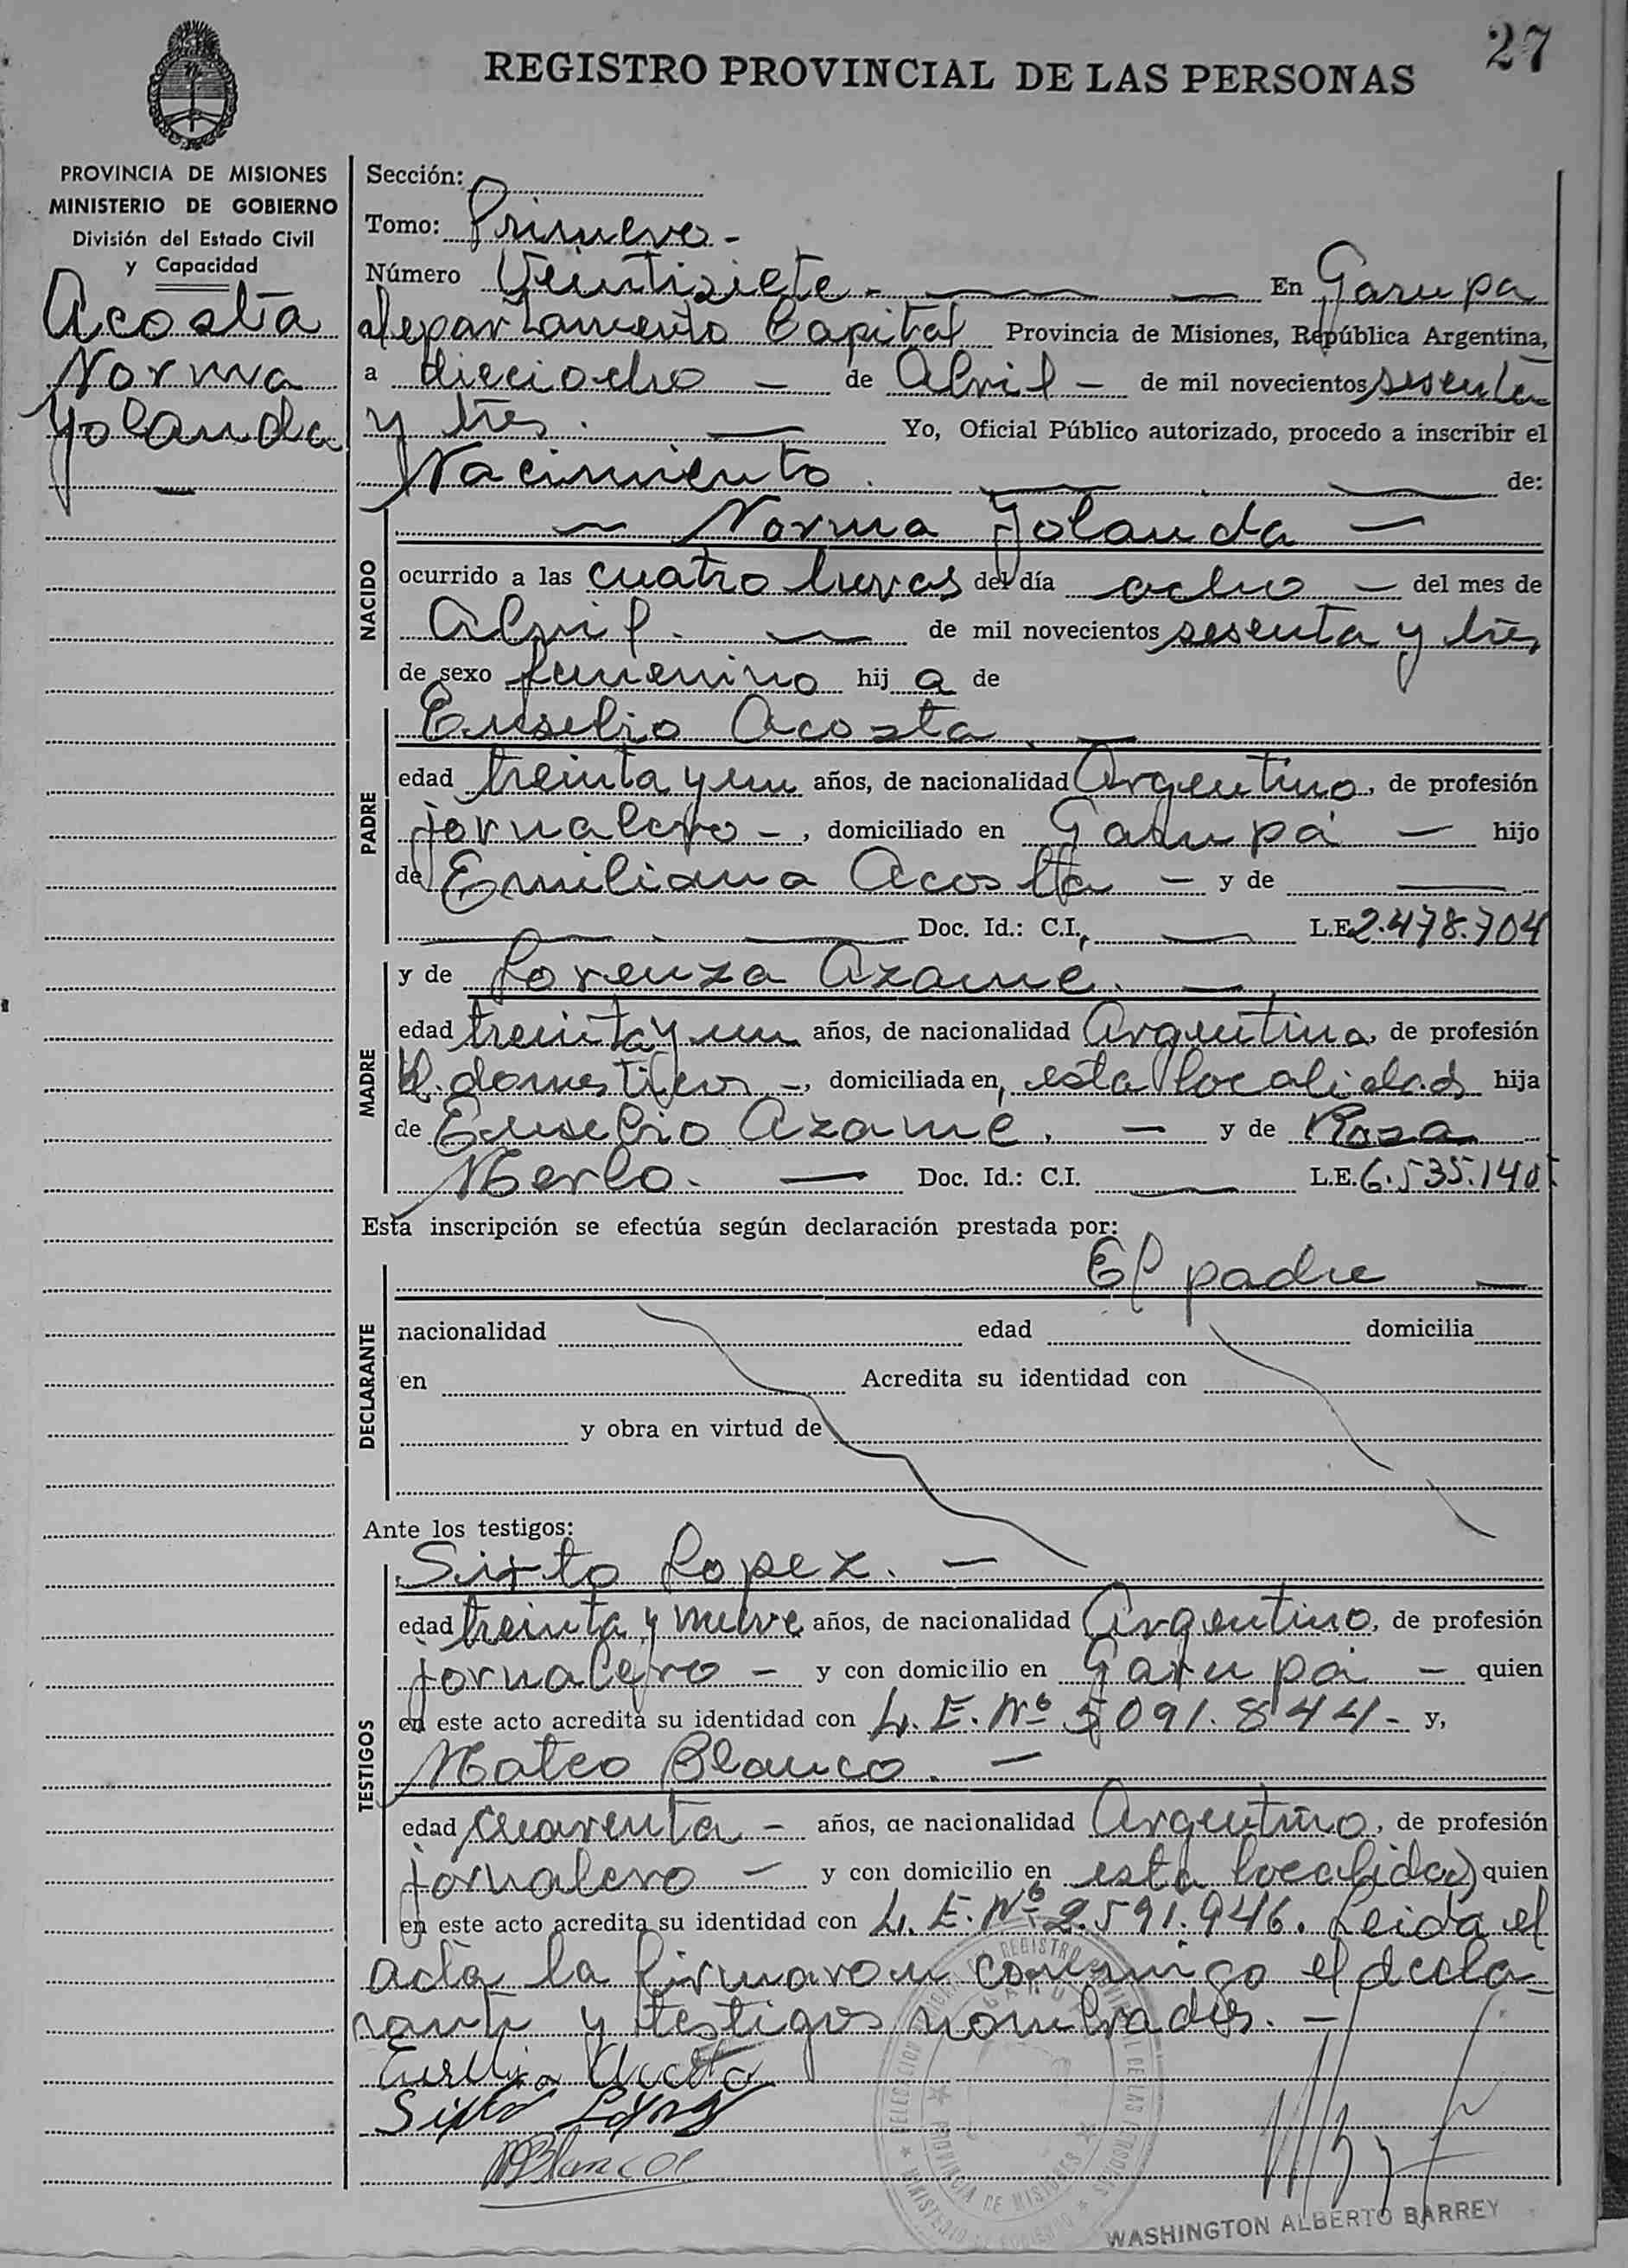 27
REGISTRO PROVINCIAL DE LAS PERSONAS
PROVINCIA DE MISIONES
MINISTERIO DE GOBIERNO
División del Estado Civil
y Capacidad
Acosta
Norma
Yolanda
Sección:
Tomo: Primero -
Número Veintisiete - En Garupa
departamento Capital Provincia de Misiones, República Argentina,
a dieciocho - de Abril - de mil novecientos sesenta
y tres. Yo, Oficial Público autorizado, procedo a inscribir el
Nacimiento. de:
NACIDO
Norma Yolanda
ocurrido a las cuatro horas del día ocho - del mes de
Abril. de mil novecientos sesenta y tres
de sexo femenino hij a de
PADRE
Eusebio Acosta.
edad treinta y un años, de nacionalidad Argentino, de profesión
jornalero -, domiciliado en Garupá - hijo
de Emiliana Acosta - y de
Doc. Id.: C.I. L.E. 2.478.704
MADRE
y de Lorenza Azame.
edad treinta y un años, de nacionalidad Argentina, de profesión
Q. domesticos -, domiciliada en, esta localidad hija
de Eusebio Azame. - y de Rosa
Merlo. - Doc. Id.: C.I. L.E. 6.535.140
Esta inscripción se efectúa según declaración prestada por:
DECLARANTE
El padre
nacionalidad edad domicilia
en Acredita su identidad con
y obra en virtud de
Ante los testigos:
TESTIGOS
Sixto Lopez. -
edad treinta y nueve años, de nacionalidad Argentino, de profesión
jornalero - y con domicilio en Garupá - quien
en este acto acredita su identidad con L. E. Nº 5091.844 - y,
Mateo Blanco. -
edad cuarenta - años, de nacionalidad Argentino, de profesión
jornalero - y con domicilio en esta localidad quien
en este acto acredita su identidad con L. E. Nº 2.591.946. Leida el
acta la firmaron conmigo el decla-
rante y testigos nombrados. -
Eusebio Acosta
Sixto López
MBlanco
DELEGACION REGISTRO PROVINCIAL DE LAS PERSONAS
GARUPA
PROVINCIA DE MISIONES
MINISTERIO DE GOBIERNO
WASHINGTON ALBERTO BARREY